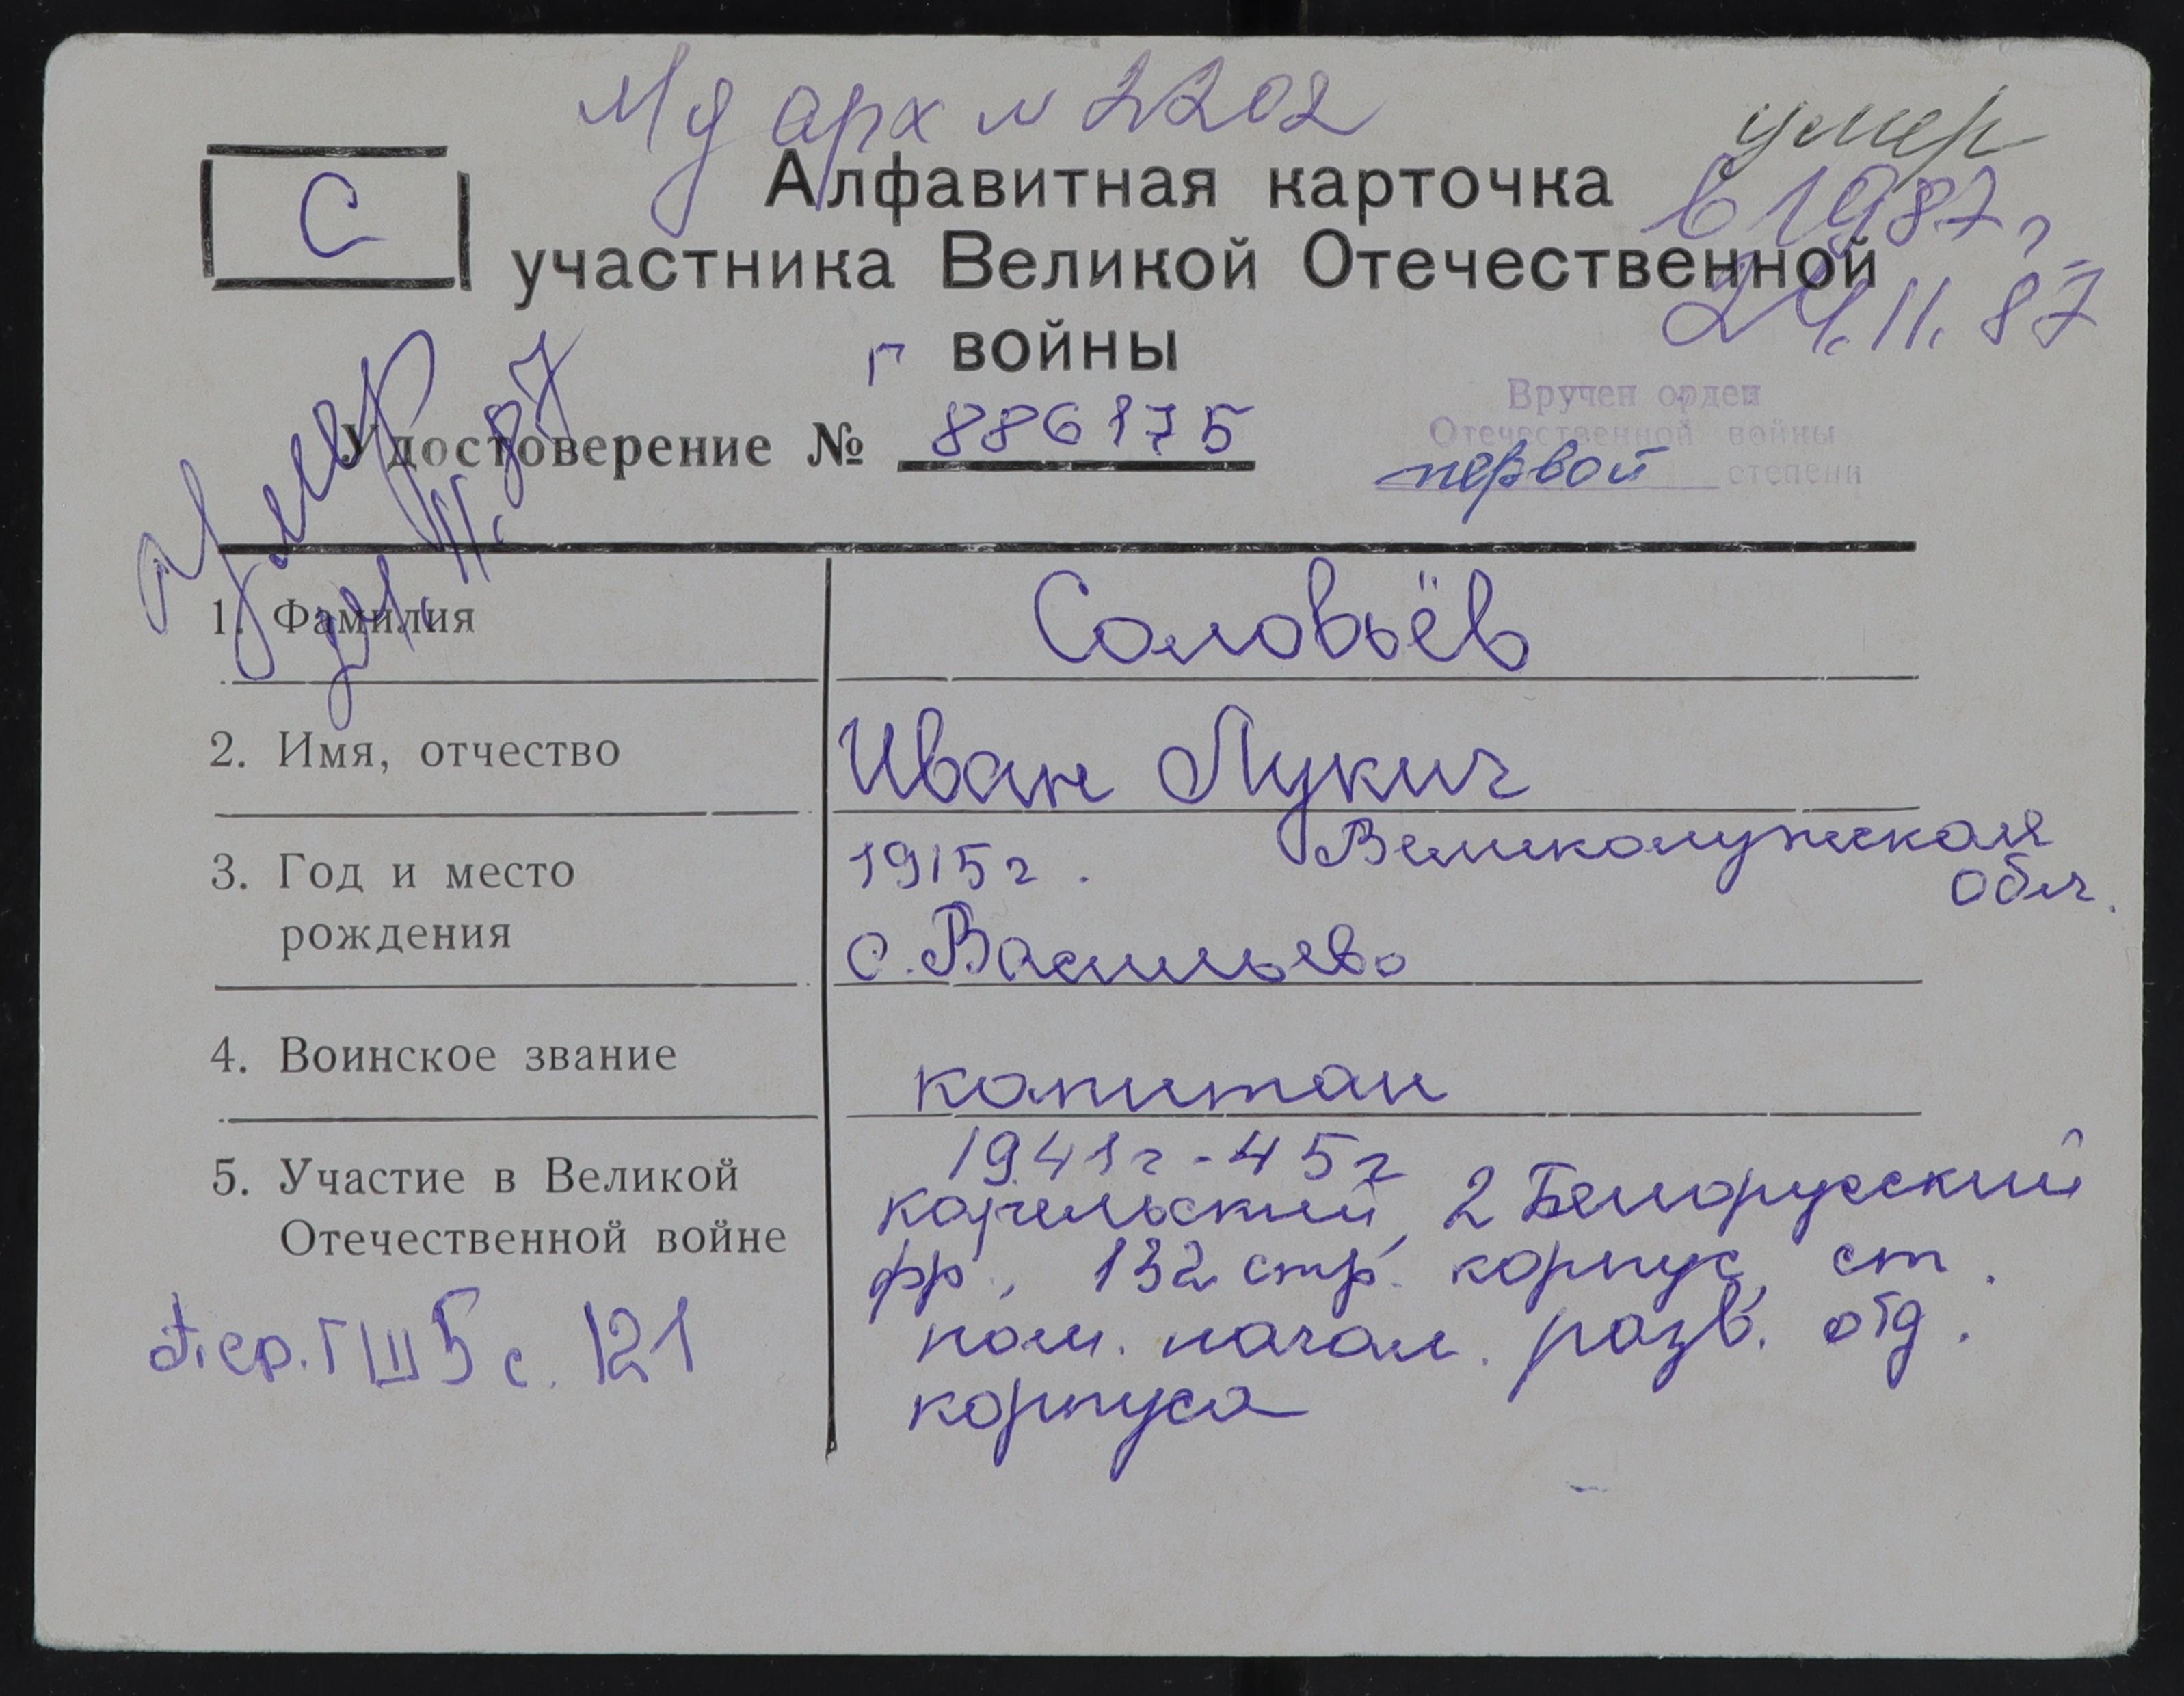 Мд арх № 2202
умер
в 1987 г
24.11.87
С
Алфавитная карточка
участника Великой Отечественной
войны
Умер
24.11.87
Удостоверение № Г 886175
Вручен орден
Отечественной войны
первой степени
1. Фамилия
Соловьёв
2. Имя, отчество
Иван Лукич
3. Год и место
рождения
1915г. Великолукская
обл.
с. Васильево
4. Воинское звание
капитан
5. Участие в Великой
Отечественной войне
1941г-45г
карельский, 2 Белорусский
фр., 132 стр. корпус, ст.
пом. начал. разв. отд.
корпуса
сер. ГШ 5 с. 121